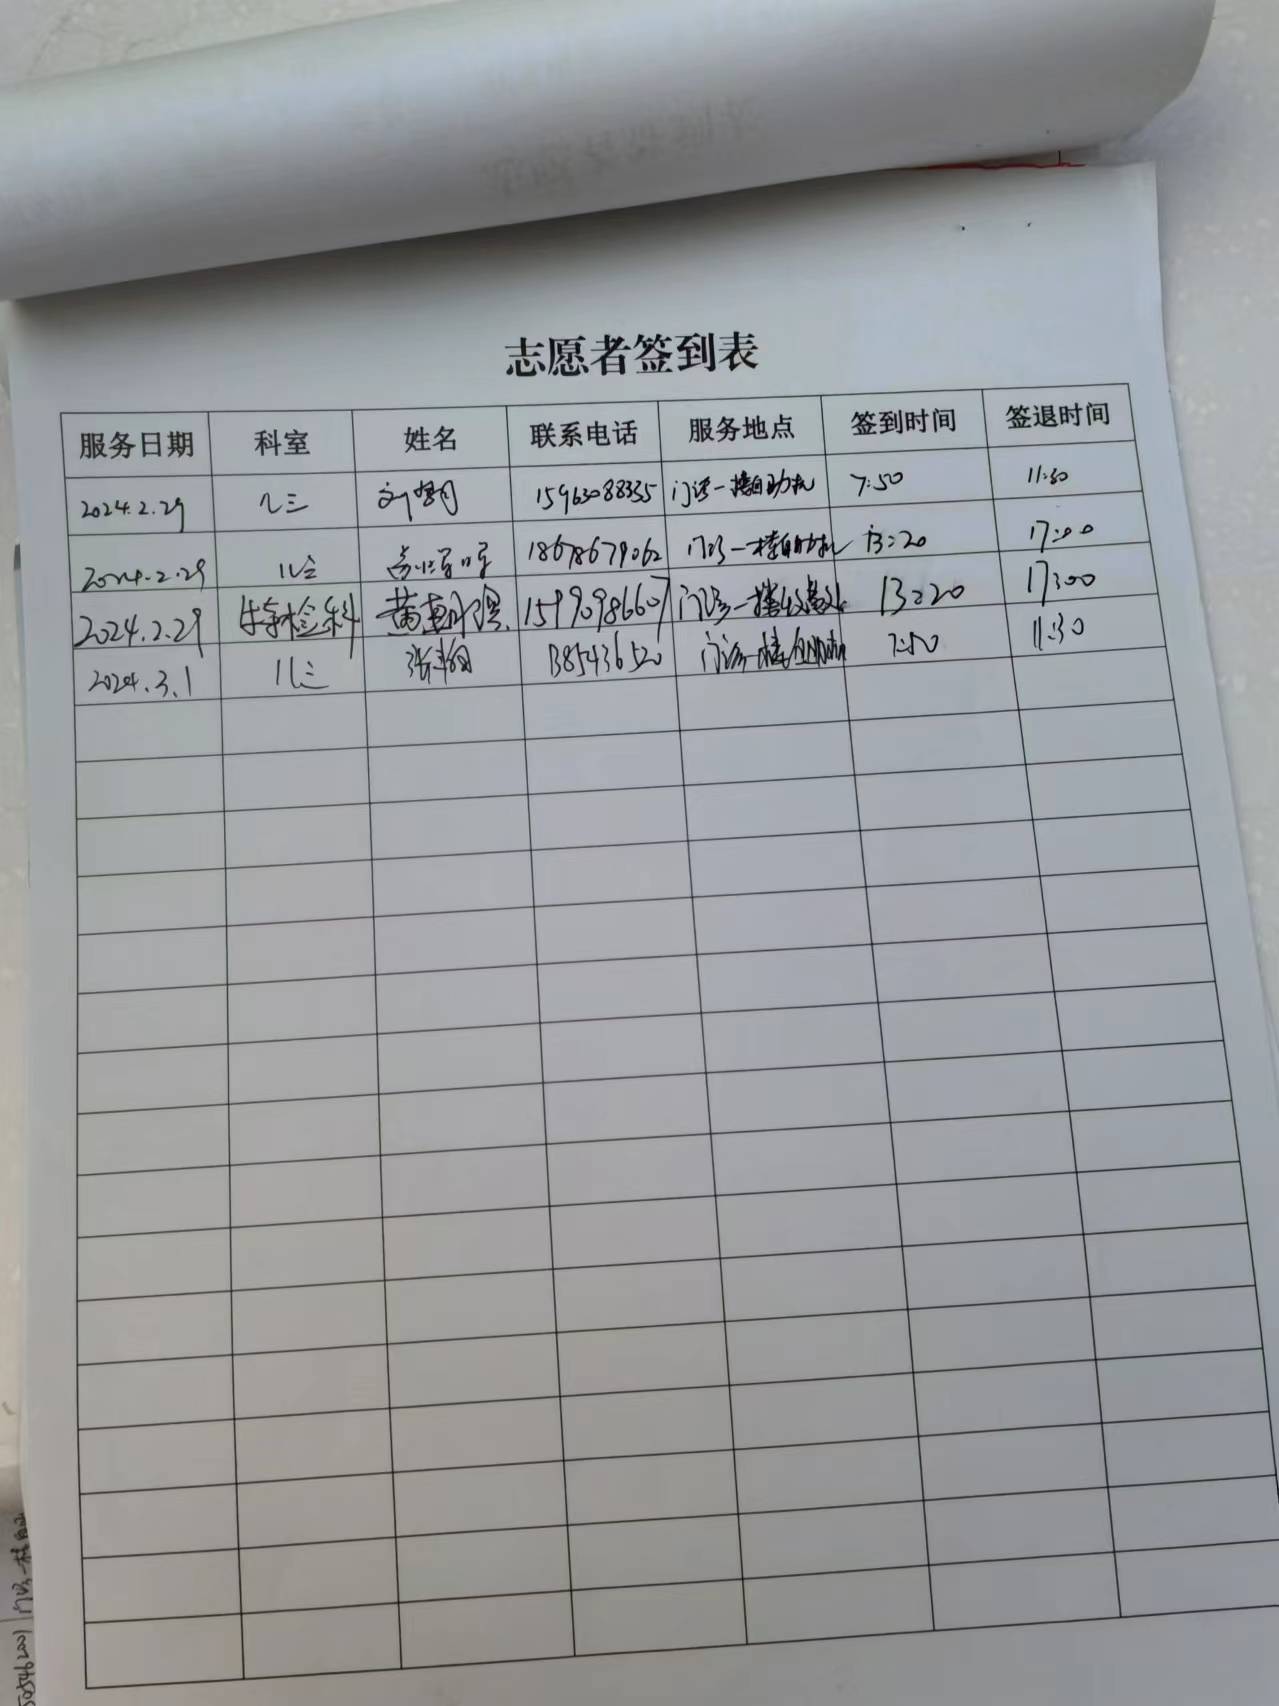 志愿者签到表
服务日期 科室 姓名 联系电话 服务地点 签到时间 签退时间
2024.2.29 儿三 刘 15963088335 门诊一楼自助机 7:50 11:30
2024.2.29 18678679062 门诊一楼自助机 13:20 17:00
2024.2.29 特检科 黄 15990986607 门诊一楼收费处 13:20 17:00
2024.3.1 儿三 张 1385436520 门诊一楼自助机 7:50 11:30